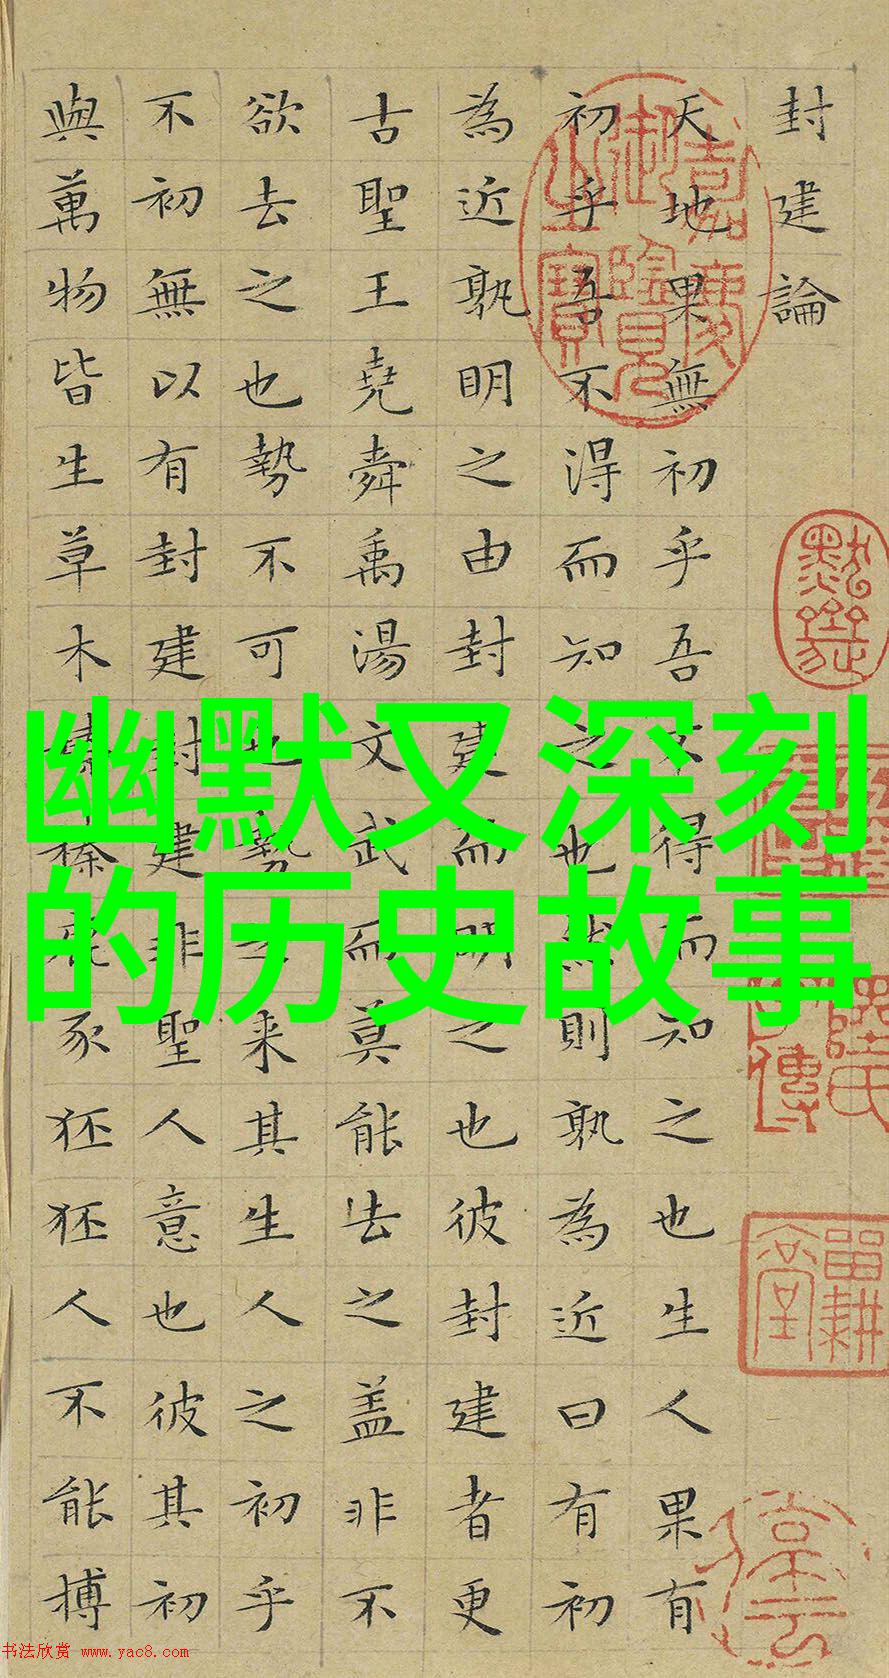 封建論
天地果無初乎吾不得而知之也生人果有
初乎吾不淂而知之也然則孰為近曰有初
為近孰明之由封建而明之也彼封建者更
古聖王堯舜禹湯文武而莫能去之盖非不
欲去之也勢不可也勢之来其生人之初乎
不初無以有封建封建非聖人意也彼其初
與萬物皆生草木榛榛鹿豕狉狉人不能搏
嘉慶御覽之寶
畱耕堂
幽默又深刻
的历史故事
书法欣赏 www.yac8.com